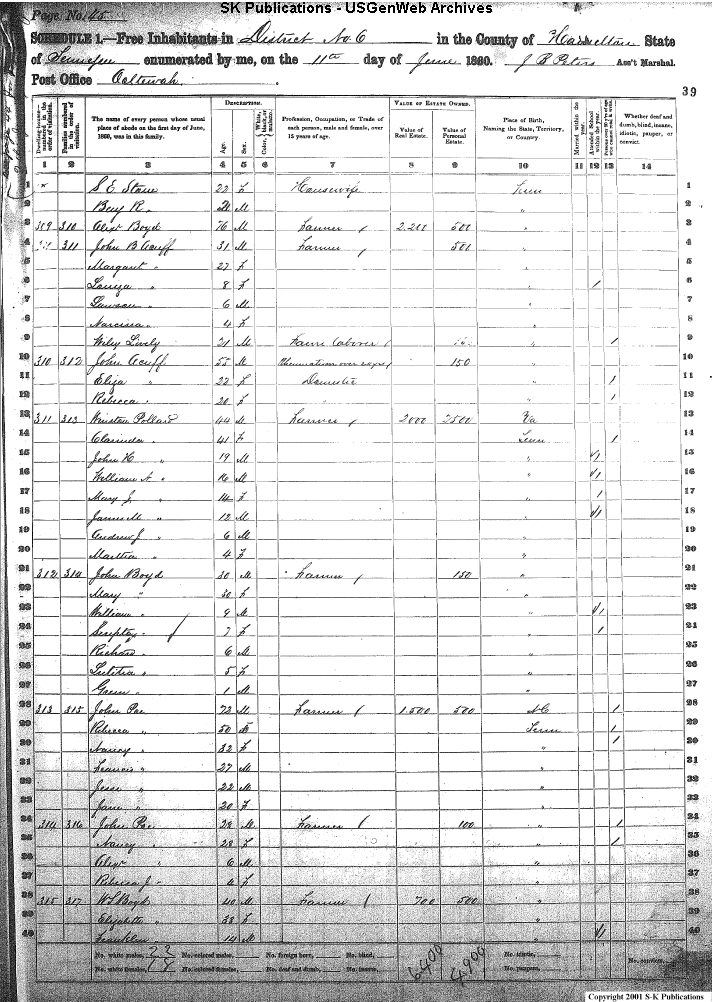 SK Publications - USGenWeb Archives
Page No. 45
SCHEDULE 1.—Free Inhabitants in District No. 6 in the County of Hamilton State
of Tennessee enumerated by me, on the 11th day of June 1860. J B Peters Ass't Marshal.
Post Office Ooltewah
39
Dwelling-houses—numbered in the order of visitation.
Families numbered in the order of visitation.
The name of every person whose usual place of abode on the first day of June, 1860, was in this family.
DESCRIPTION.
Age.
Sex.
Color, White, black, or mulatto.
Profession, Occupation, or Trade of each person, male and female, over 15 years of age.
VALUE OF ESTATE OWNED.
Value of Real Estate.
Value of Personal Estate.
Place of Birth, Naming the State, Territory, or Country.
Married within the year.
Attended School within the year.
Whether deaf and dumb, blind, insane, idiotic, pauper, or convict.
1 2 3 4 5 6 7 8 9 10 11 12 13 14
1 S E Stone 22 f Housewife Tenn 1
2 M " 2
3 309 310 Alex Boyd 76 M Farmer / 2.200 500 " 3
4 311 John B Acuff 31 M Farmer / 500 " 4
5 Margaret " 27 f " 5
6 Louiza " 8 f " / 6
7 Lawson " 6 M " 7
8 Narcissa " 4 f " 8
9 Wiley Lively 21 M Farm Laborer / " 1 9
10 310 312 John Acuff 55 M Rheumatism over 20 yrs / 150 " 10
11 Eliza " 22 f Domestic " 1 11
12 Rebecca " 20 f " " 1 12
13 311 313 Winston Pollard 44 M Farmer / 2000 2500 Va 13
14 Clarinda " 41 f Tenn 1 14
15 John H " 19 M " √1 15
16 William A " 16 M " √1 16
17 Mary J " 14 f " 1 17
18 James M " 12 M " √1 18
19 Andrew J " 6 M " 19
20 Martha " 4 f " 20
21 312 314 John Boyd 30 M Farmer / 150 " 21
22 Mary " 30 f " 22
23 William " 9 M " √1 23
24 " 7 f " 1 24
25 Richard " 6 M " 25
26 Letitia " 5 f " 26
27 Green " 1 M " 27
28 313 315 John Poe 72 M Farmer / 1.500 500 NC 1 28
29 Rebecca " 50 f Tenn 1 29
30 Nancy " 32 f " 1 30
31 Francis " 27 M 31
32 Jesse " 22 M " 32
33 Jane " 20 f " 33
34 314 316 John Poe M Farmer / 100 " 1 34
35 Nancy " 28 f " 1 35
36 Alex " 6 M " 36
37 Rebecca J " 4 f " 37
38 315 317 W L Boyd 40 M Farmer / 700 500 " 38
39 Elizabeth " 38 f " 39
40 Franklin " 14 M " √1 40
No. white males, 23 No. colored males, No. foreign born, No. blind, 6400 4900 No. idiotic, No. convicts,
No. white females, 17 No. colored females, No. deaf and dumb, No. insane, No. paupers,
Copyright 2001 S-K Publications